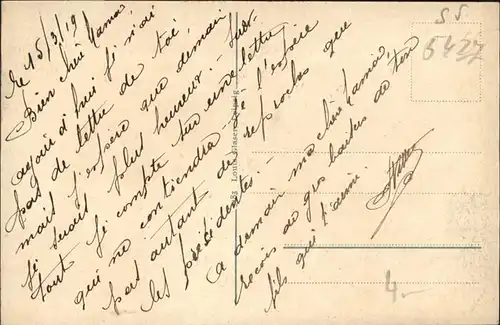 Le 15/3/19
Bien chère Mama,
aujourd'hui je n'ai
pas de lettre de toi,
mais j'espère que demain
je serais plus heureux. Sur-
tout je compte sur une lettre
qui ne contiendra je l'espère
pas autant de reproches que
les précédentes. -
A demain ma chère Mama
reçois de gros baisers de ton
fils qui t'aime.
Louis Glaser, Leipzig
S.S.
6427
4.-